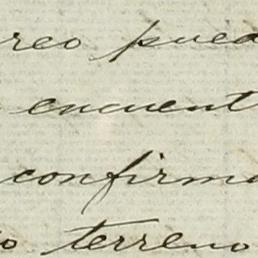 reo pued
encuent
confirma
o terreno